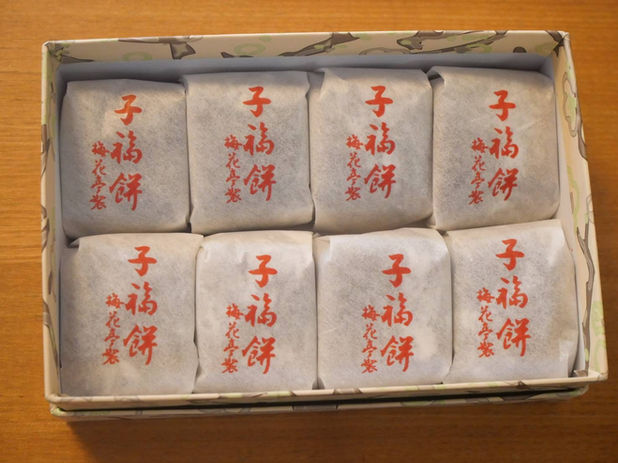 子福餅
梅花亭製
子福餅
梅花亭製
子福餅
梅花亭製
子福餅
梅花亭製
子福餅
梅花亭製
子福餅
梅花亭製
子福餅
梅花亭製
子福餅
梅花亭製